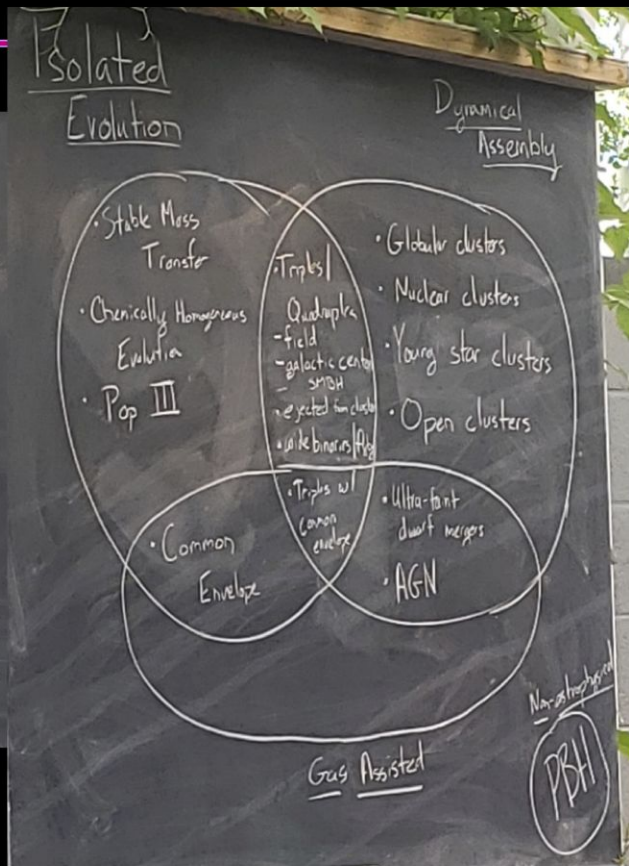 Isolated
Evolution
Dynamical
Assembly
• Stable Mass
Transfer
• Chemically Homogeneous
Evolution
• Pop III
• Triples/
Quadruples
- field
- galactic center
- SMBH
• ejected from cluster
• wide binaries/
• Globular clusters
• Nuclear clusters
• Young star clusters
• Open clusters
• Common
Envelope
• Triples w/
common
envelope
• Ultra-faint
dwarf mergers
• AGN
Gas Assisted
Non-astrophysical
PBH